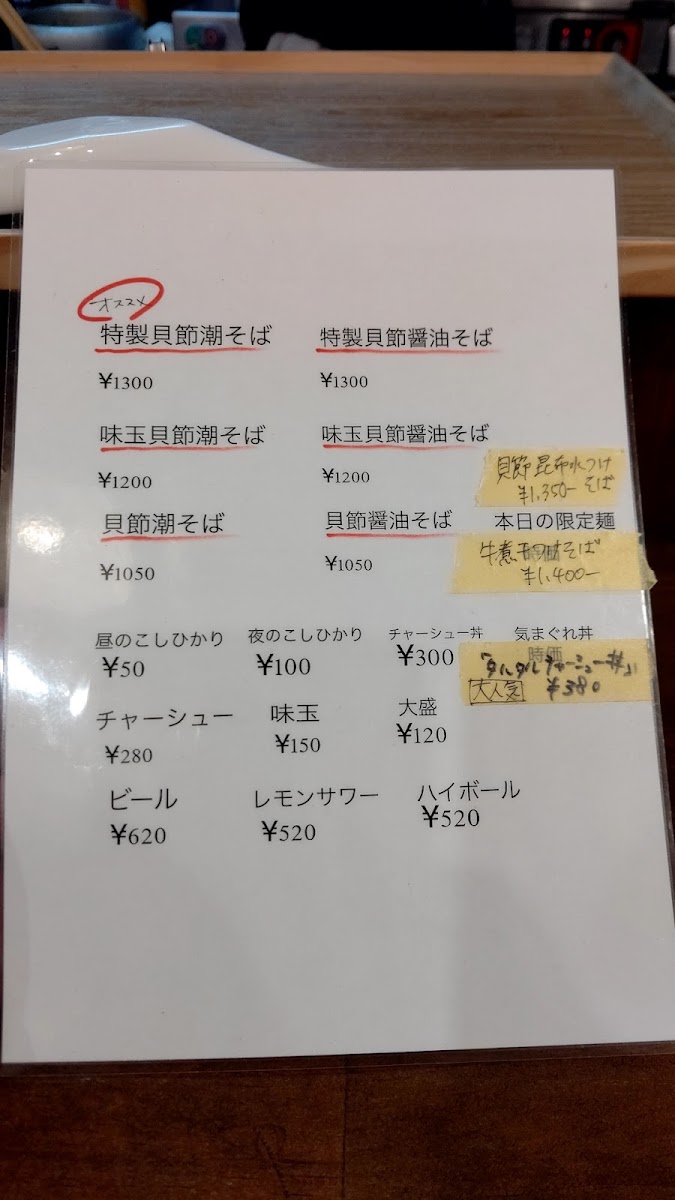 オススメ
特製貝節潮そば
¥1300
特製貝節醤油そば
¥1300
味玉貝節潮そば
¥1200
味玉貝節醤油そば
¥1200
貝節昆布水つけ
¥1,350- そば
貝節潮そば
¥1050
貝節醤油そば
¥1050
本日の限定麺
牛煮干しそば
¥1,400-
昼のこしひかり
¥50
夜のこしひかり
¥100
チャーシュー丼
¥300
気まぐれ丼
時価
「タルタルチャーシュー丼」
大人気 ¥380
チャーシュー
¥280
味玉
¥150
大盛
¥120
ビール
¥620
レモンサワー
¥520
ハイボール
¥520